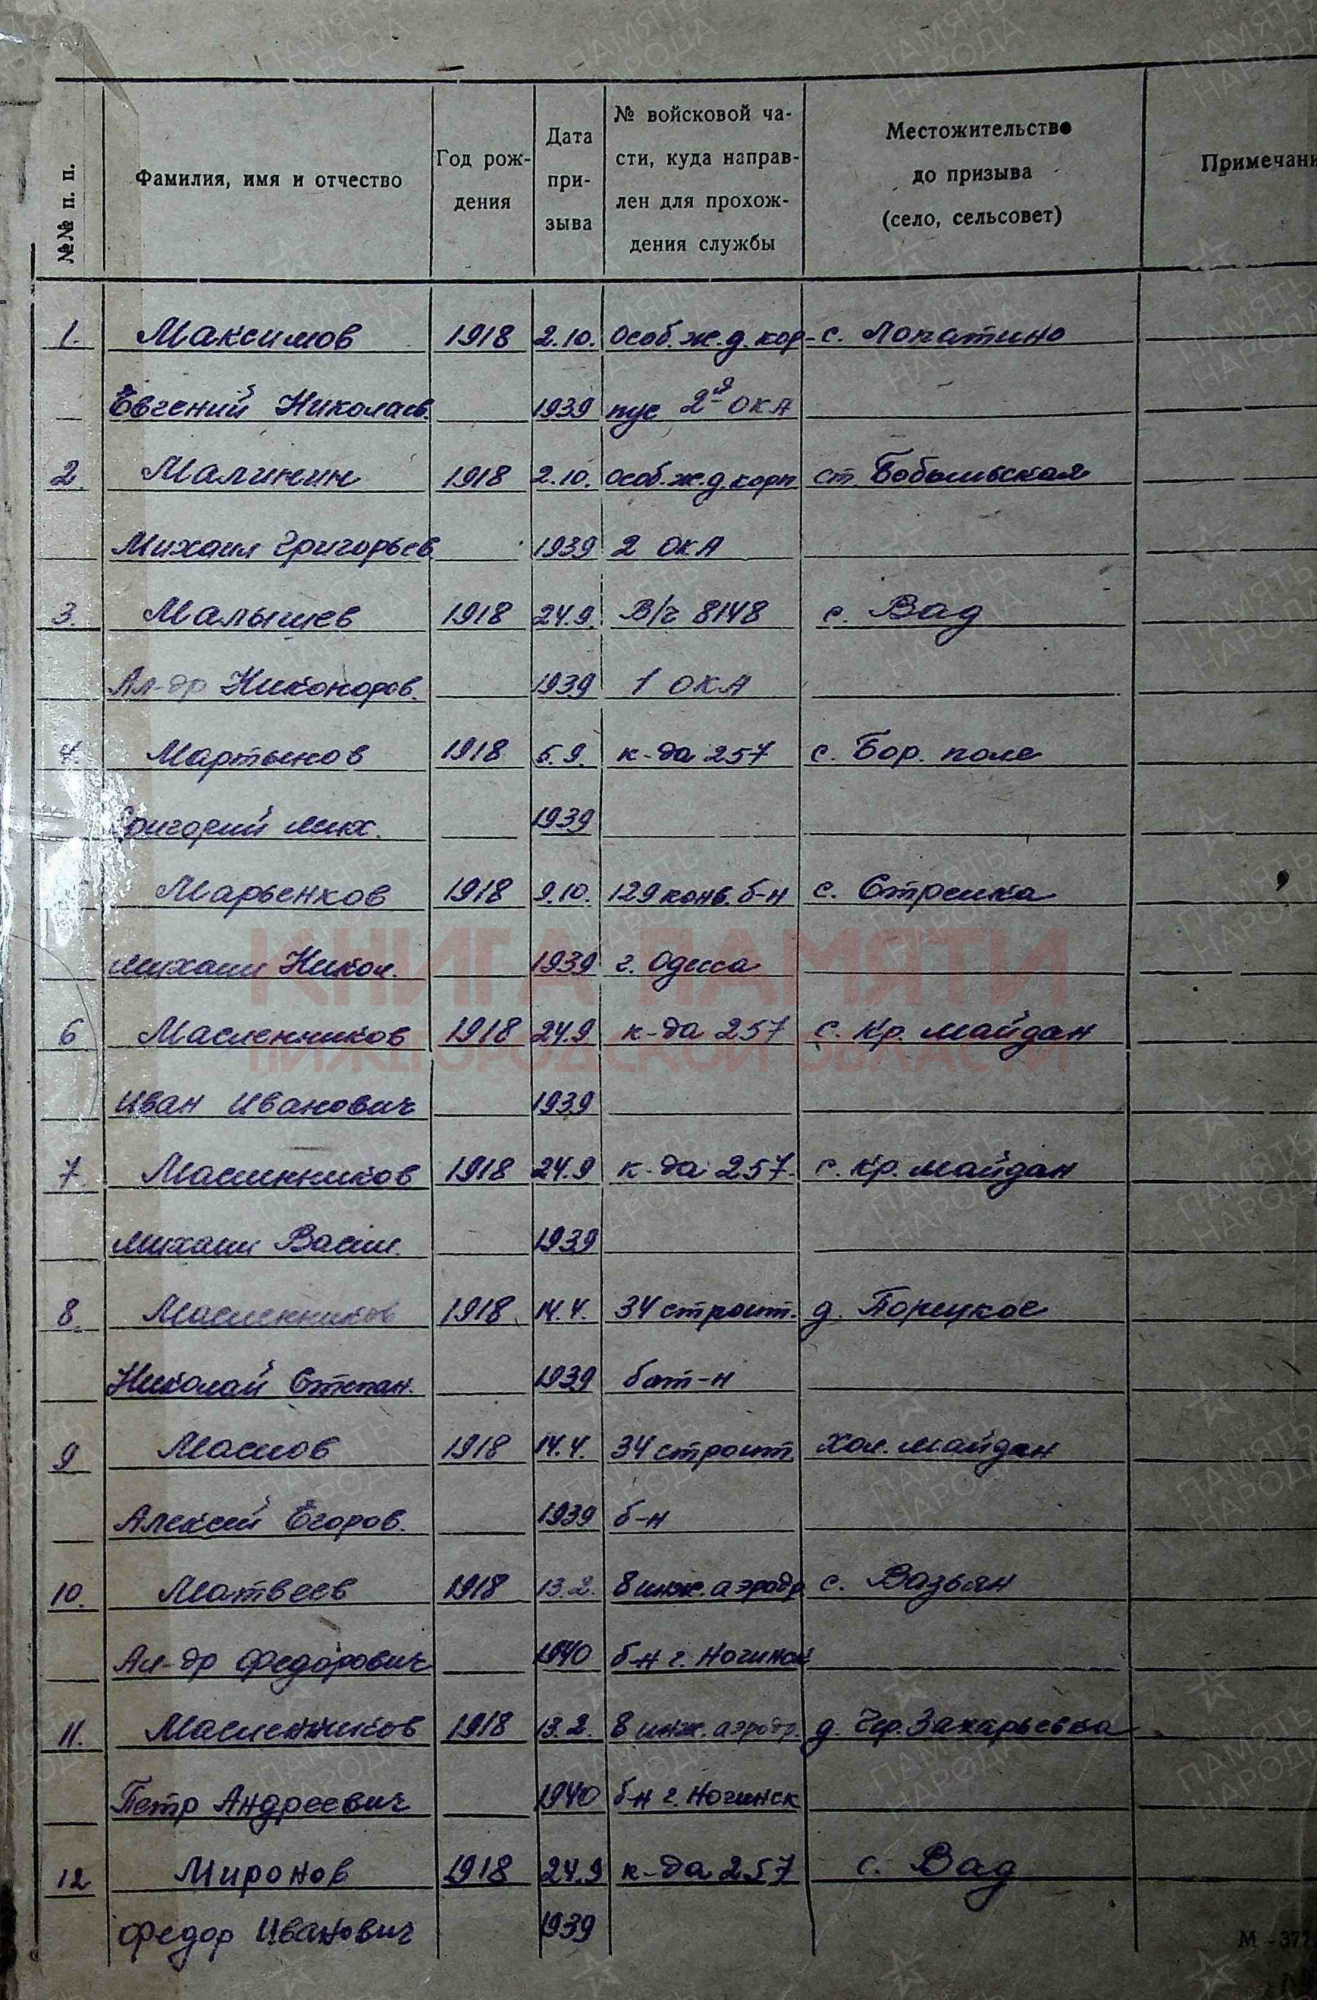 №№ п. п.
Фамилия, имя и отчество
Год рож-
дения
Дата
при-
зыва
№ войсковой ча-
сти, куда направ-
лен для прохож-
дения службы
Местожительство
до призыва
(село, сельсовет)
Примечани
1. Максимов 1918 2.10. особ. ж.д. кор- с. Лопатино
Евгений Николаев. 1939 пус 2й ОКА
2 Малинин 1918 2.10. особ. ж.д. корп. ст. Бобыльская
Михаил Григорьев 1939 2 ОКА
3. Малышев 1918 24.9. В/ч 8148 с. Вад
Ал-др Никоноров. 1939 1 ОКА
4. Мартынов 1918 5.9. к-да 257 с. Бор. поле
Григорий Мих. 1939
Марьенков 1918 9.10. 129 конв. б-н с. Стрелка
Михаил Никол. 1939 г. Одесса
КНИГА ПАМЯТИ
6 Масленников 1918 24.9 к-да 257 с. Кр. Майдан
НИЖЕГОРОДСКОЙ ОБЛАСТИ
Иван Иванович 1939
7. Масленников 1918 24.9 к-да 257. с. Кр. Майдан
Михаил Васил. 1939
8 Масленников 1918 14.4. 34 строит. д. Порецкое
Николай Степан. 1939 бат-н
9 Маслов 1918 14.4. 34 строит. Хол. Майдан
Алексей Егоров. 1939 б-н
10. Матвеев 1918 13.2. 8 инж. аэродр. с. Вазьян
Ал-др Федорович 1940 б-н г. Ногинск
11. Масленников 1918 13.2. 8 инж. аэродр. д. Захарьевка
Петр Андреевич 1940 б-н г. Ногинск
12 Миронов 1918 24.9 к-да 257 с. Вад
Федор Иванович 1939
М - 377
ПАМЯТЬ
НАРОДА